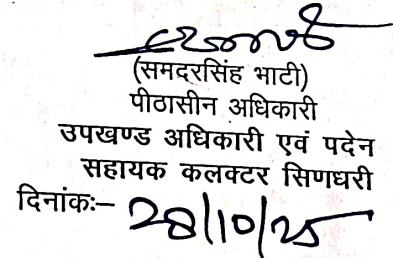 (समदरसिंह भाटी)
पीठासीन अधिकारी
उपखण्ड अधिकारी एवं पदेन
सहायक कलक्टर सिणधरी
दिनांकः– 28/10/25